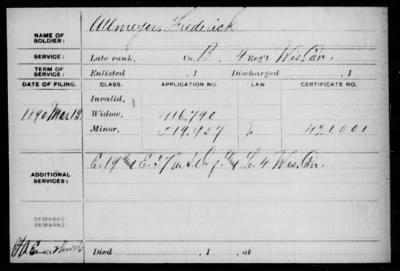 NAME OF SOLDIER: Allmeyer, Frederick
SERVICE: Late rank, Co. B, 4 Reg't Wis. Cav.
TERM OF SERVICE: Enlisted , 1 Discharged , 1
DATE OF FILING. CLASS. APPLICATION NO. LAW CERTIFICATE NO.
Invalid,
1890 Mar 13 Widow, 416,790
Minor, 519,957 421,001
ADDITIONAL SERVICES: E. 19 E. 37 & L. 4 Wis. Cav.
REMARKS:
REMARKS:
Died , 1 , at